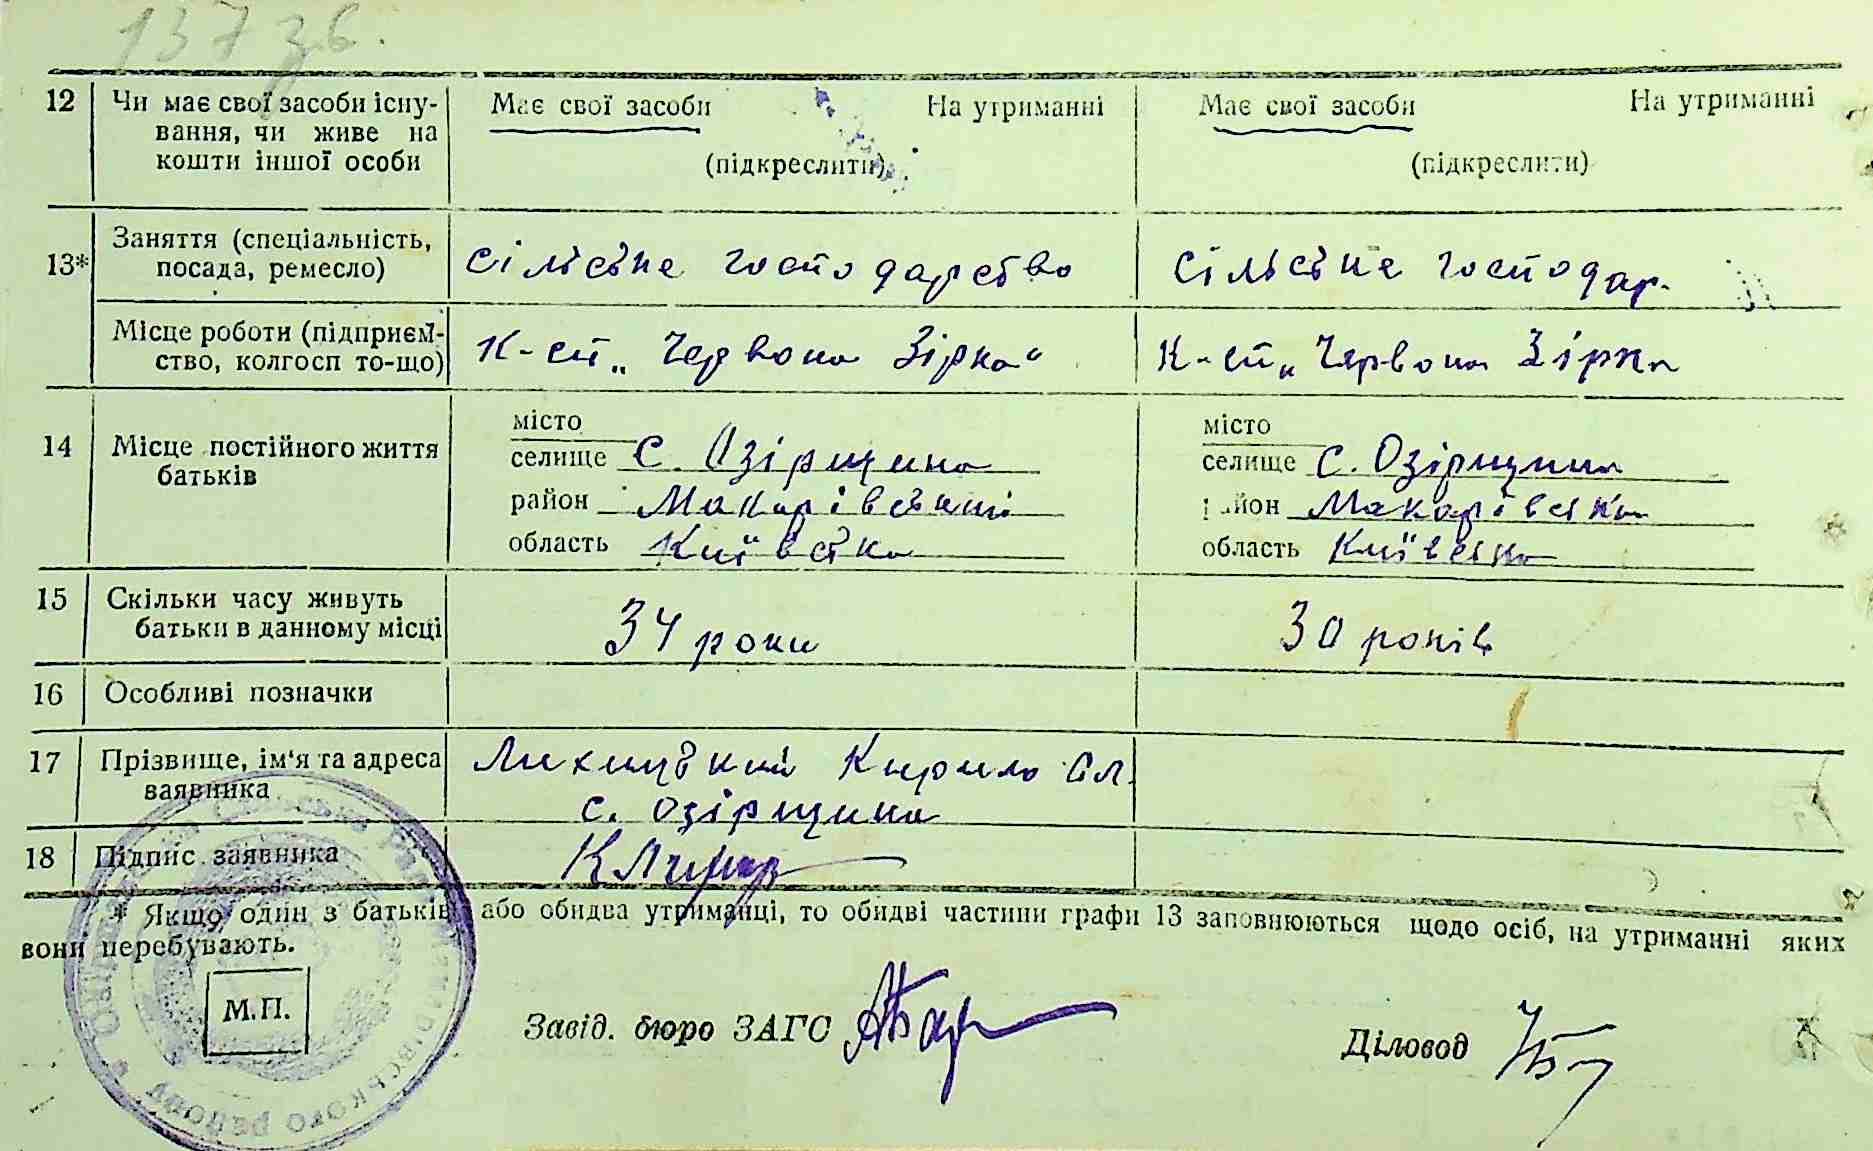 137 зв.
12 Чи має свої засоби існу- Має свої засоби На утриманні Має свої засоби На утриманні
вання, чи живе на
кошти іншої особи (підкреслити) (підкреслити)
13* Заняття (спеціальність, сільське господарство сільське господар.
посада, ремесло)
Місце роботи (підприєм- К-сп „Червона Зірка“ К-сп „Червона Зірка
ство, колгосп то-що)
місто місто
14 Місце постійного життя селище с. Озірщина селище с. Озірщина
батьків район Макарівський район Макарівська
область Київська область Київська
15 Скільки часу живуть 34 роки 30 років
батьки в данному місці
16 Особливі позначки
17 Прізвище, ім'я та адреса Кирило Ол.
заявника с. Озірщина
18 Підпис заявника
* Якщо один з батьків або обидва утриманці, то обидві частини графи 13 заповнюються щодо осіб, на утриманні яких
вони перебувають.
М.П.
Завід. бюро ЗАГС Діловод